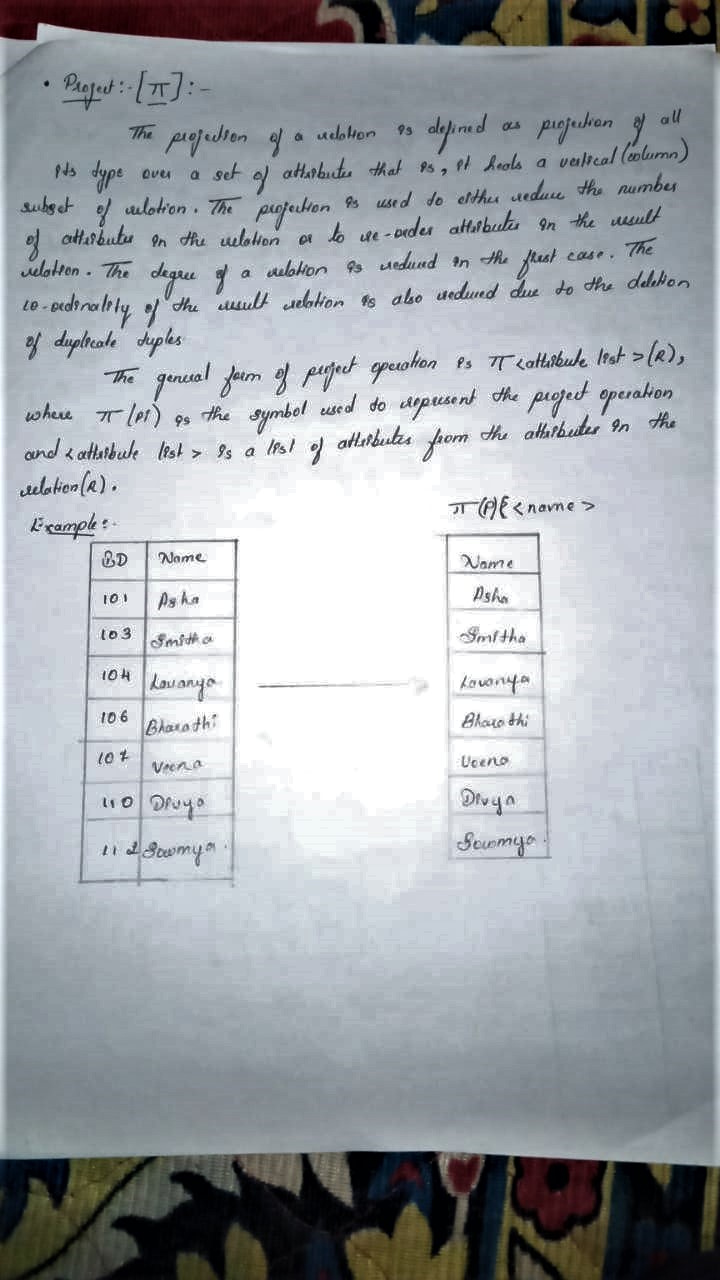 • Project :- [π] :-
The projection of a relation is defined as projection of all
its type over a set of attributes that is, it heals a vertical (column)
subset of relation. The projection is used to either reduce the number
of attributes in the relation or to re-order attributes in the result
relation. The degree of a relation is reduced in the first case. The
co-ordinality of the result relation is also reduced due to the deletion
of duplicate tuples
The general form of project operation is π <attribute list > (R),
where π (pi) is the symbol used to represent the project operation
and <attribute list > is a list of attributes from the attributes in the
relation (R).
Example :-
π (P) < name >
ID Name
101 Asha
103 Smitha
104 Lavanya
106 Bharathi
107 Veena
110 Divya
112 Sowmya.
Name
Asha
Smitha
Lavanya
Bharathi
Veena
Divya
Sowmya.